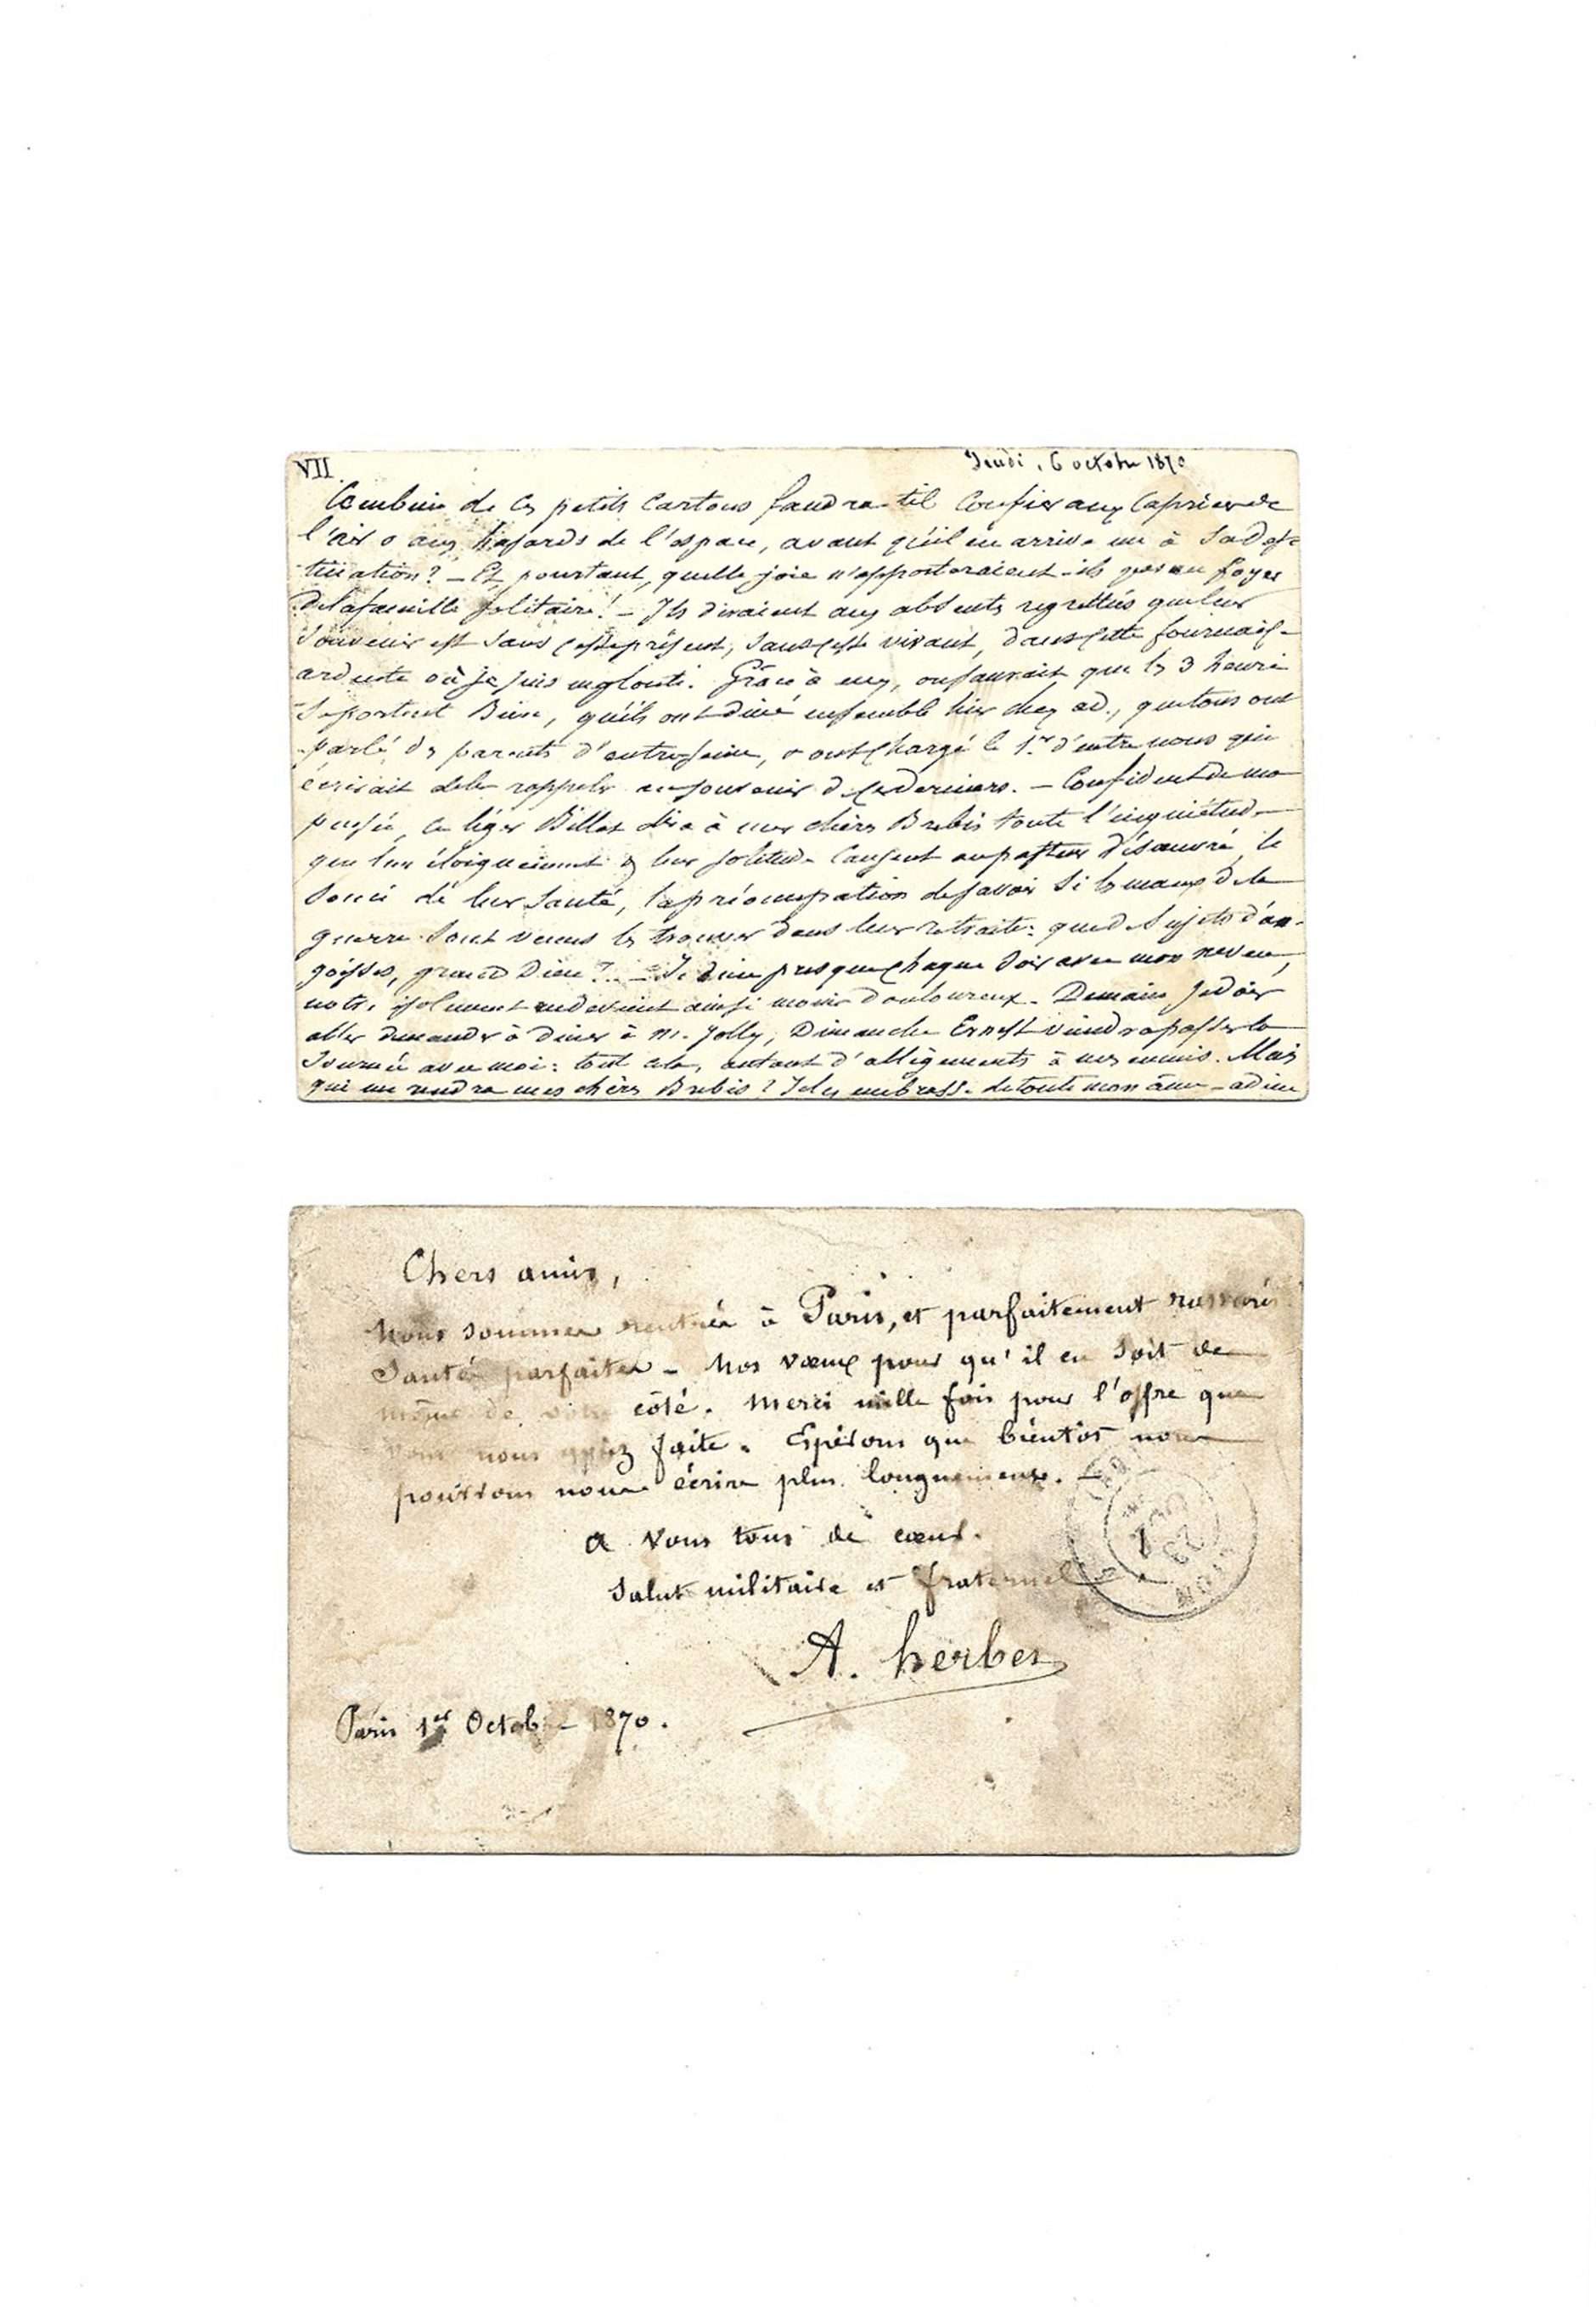 VII.
Jeudi, 6 octobre 1870
Combien de ces petits cartons faudra-til confier aux caprices de
l'air & aux hasards de l'espace, avant qu'il en arrive un à sa des-
tination? — Et pourtant, quelle joie n'apporteraient-ils pas au foyer
de la famille solitaire! — Ils diraient aux absents regrettés que leur
souvenir est sans cesse présent, sans cesse vivant, dans cette fournaise
ardente où je suis englouti. Grâce à eux, on saurait que les 3
se portent bien, qu'ils ont diné ensemble hier chez ad., que tous ont
parlé des parents d'outre Seine, & ont chargé le 1er d'entre nous qui
écrirait de les rappeler au souvenir de ces derniers. — Confident de ma
pensée, ce léger Billet dira à mes chères Brebis toute l'inquiétude
que leur éloignement & leur solitude causent au pasteur désœuvré, le
souci de leur santé, la préoccupation de savoir si les maux de la
guerre sont venus les trouver dans leur retraite: que de sujets d'an-
goisses, grand Dieu! — Je dine presque chaque soir avec mon neveu,
notre isolement en devient ainsi moins douloureux. Demain je dois
aller demander à diner à M. Jolly, Dimanche Ernest viendra passer la
journée avec moi: tout cela, autant d'allègements à mes ennuis. Mais
qui me rendra mes chères Brebis? Je les embrasse de toute mon âme — adieu
Chers amis,
Nous sommes rentrés à Paris, et parfaitement rassurés
Santés parfaites — Nos vœux pour qu'il en soit de
même de votre côté. Merci mille fois pour l'offre que
vous nous aviez faite. Espérons que bientôt nous
pourrons nous écrire plus longuement. —
A vous tous de cœur.
Salut militaire et fraternel
A. herbes
Paris 1er Octobre 1870.